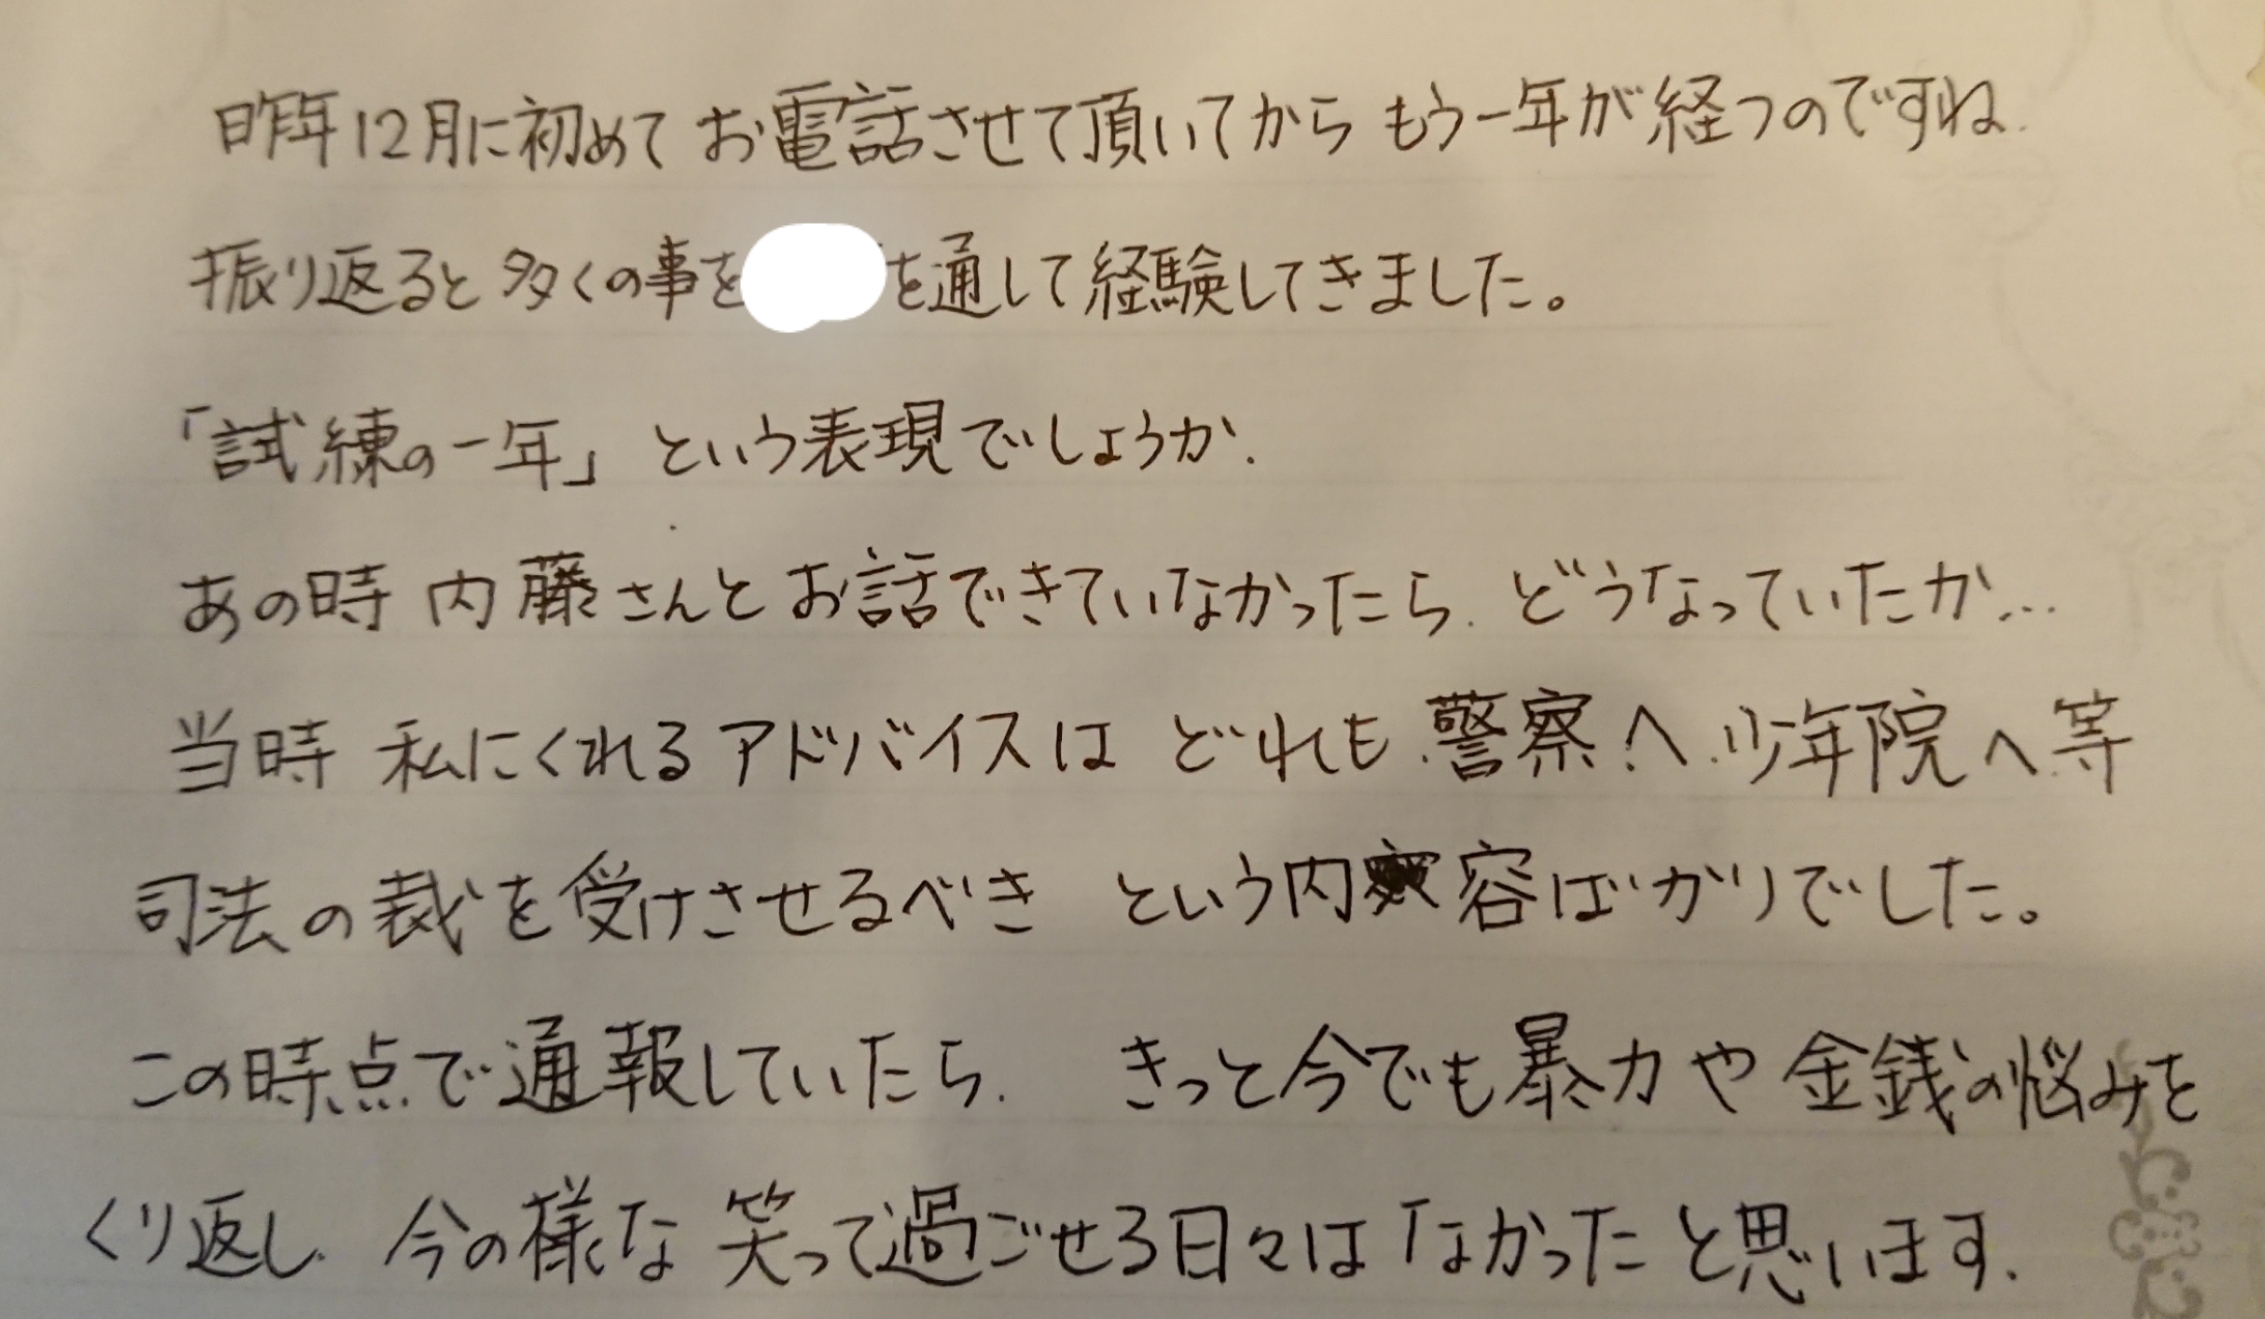 昨年12月に初めて お電話させて頂いてから もう一年が経つのですね.
振り返ると 多くの事を を通して経験してきました。
「試練の一年」 という表現でしょうか.
あの時 内藤さんと お話できていなかったら. どうなっていたか...
当時 私にくれるアドバイスは どれも.警察へ.少年院へ.等
司法の裁を受けさせるべき という内容ばかりでした。
この時点で通報していたら. きっと今でも暴力や金銭の悩みを
くり返し. 今の様な笑って過ごせる日々はなかったと思います.